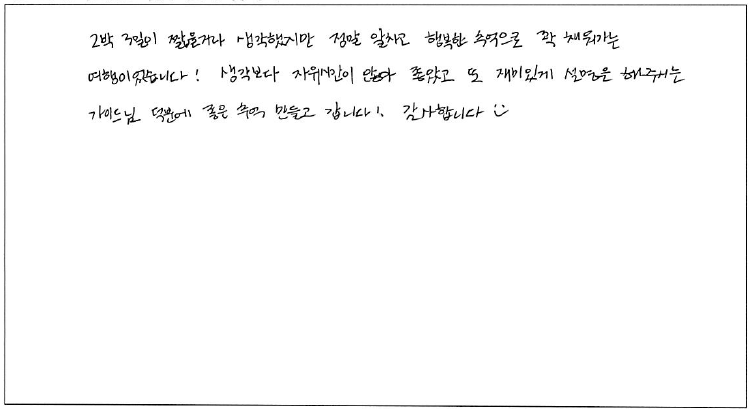 2박 3일이 짧을거라 생각했지만 정말 알차고 행복한 추억으로 꽉 채워가는
여행이었습니다! 생각보다 자유시간이 많아 좋았고 또 재미있게 설명을 해주시는
가이드님 덕분에 좋은 추억 만들고 갑니다! 감사합니다